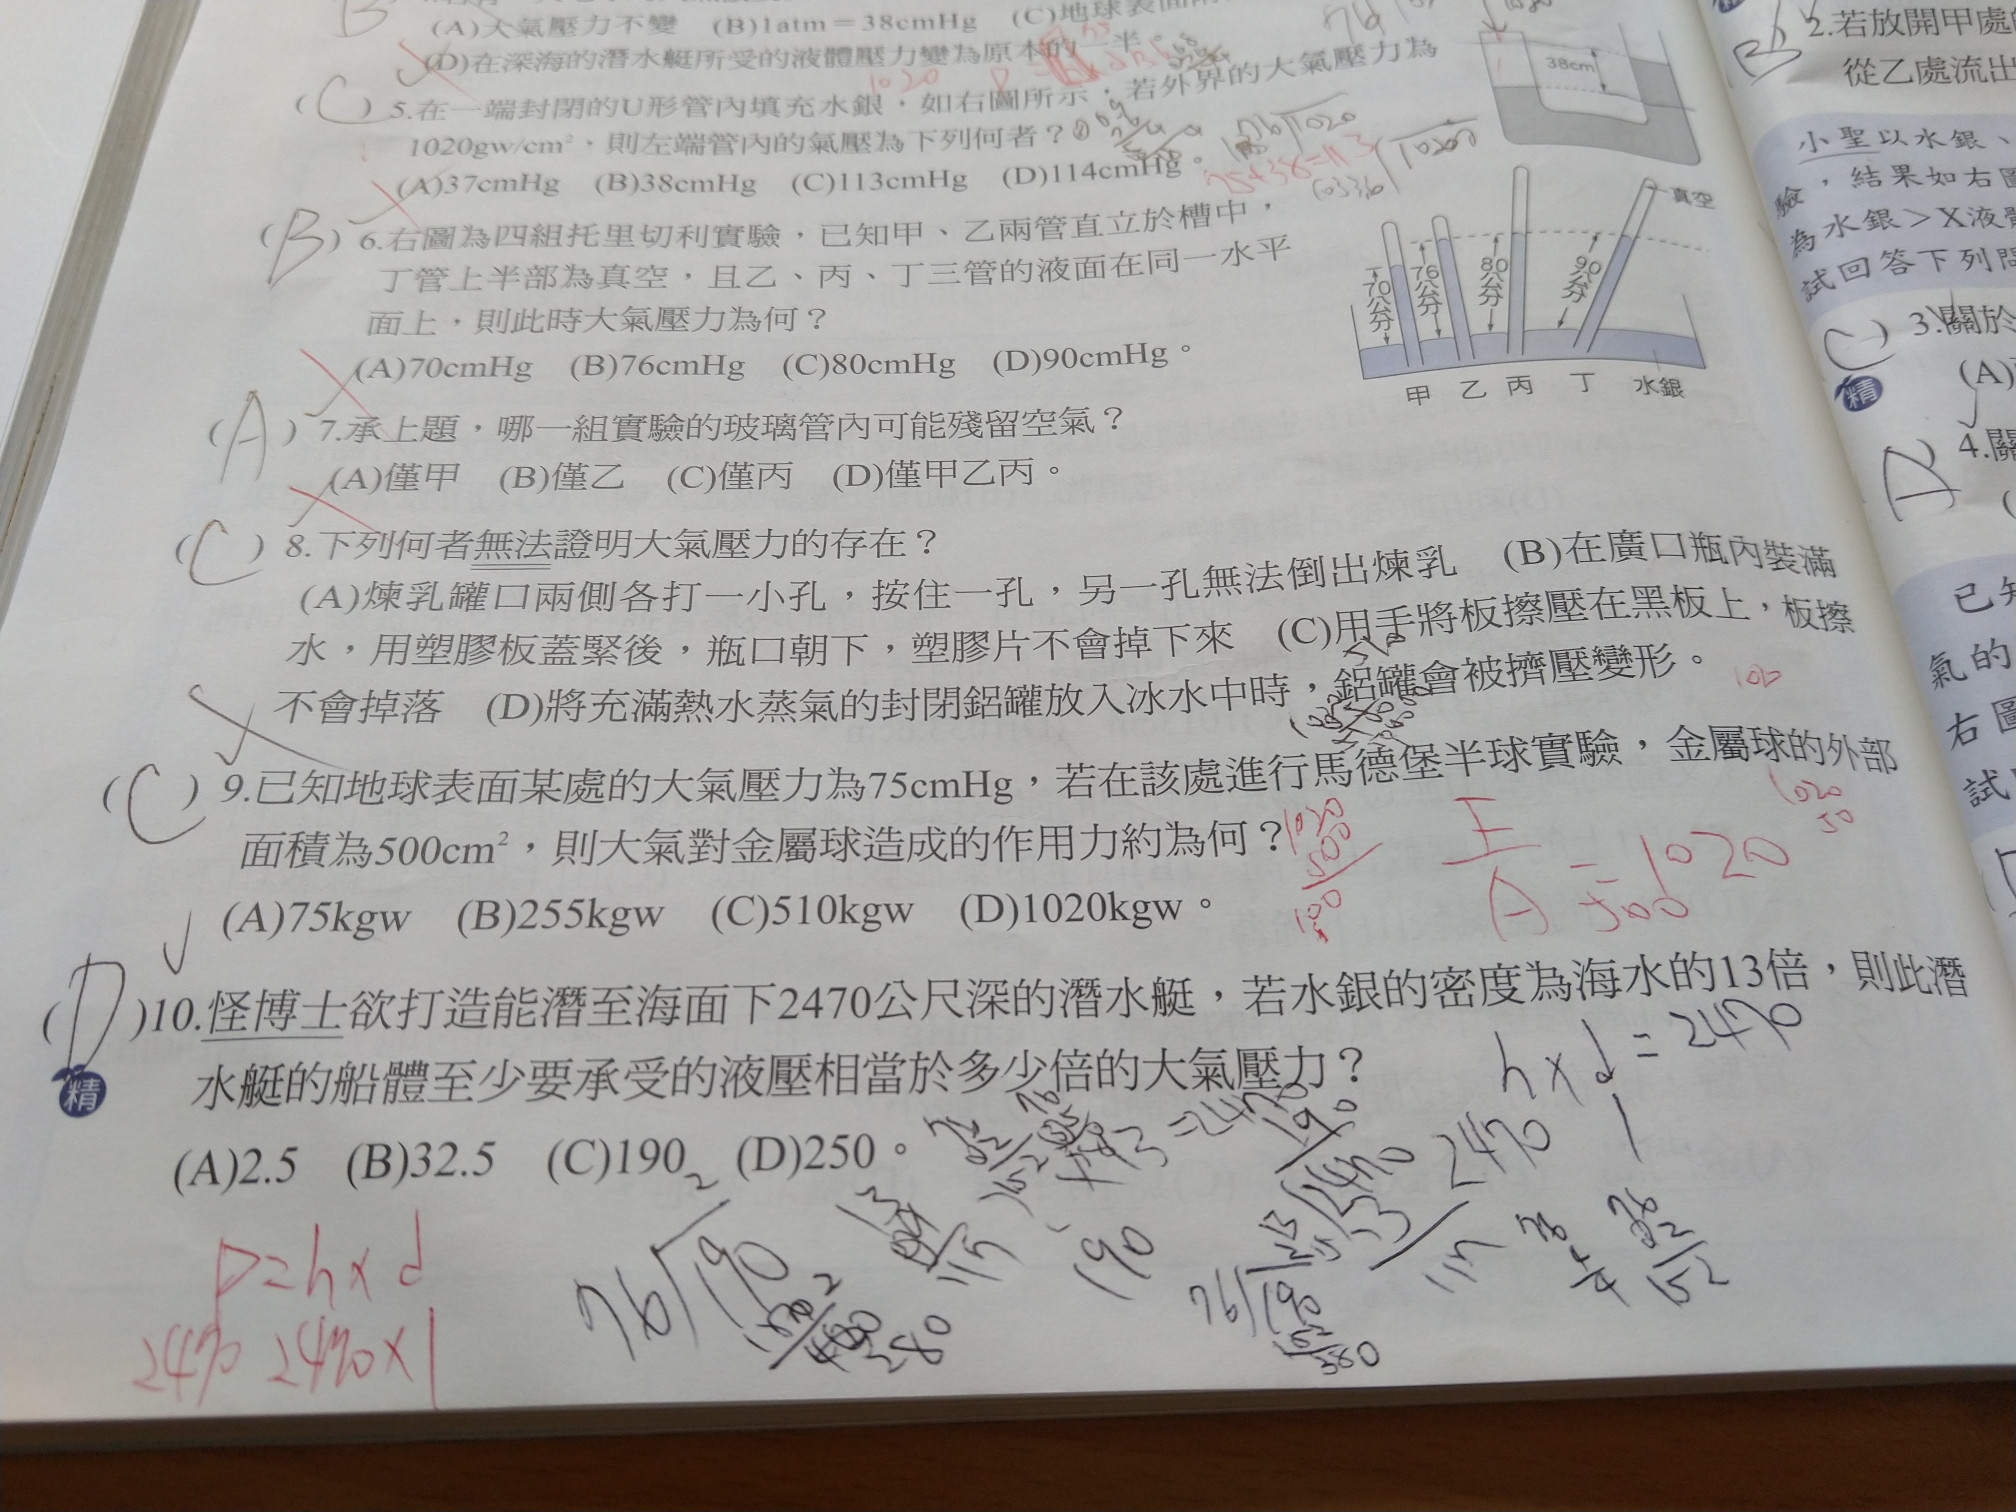 (A)大氣壓力不變 (B)1atm＝38cmHg
(D)在深海的潛水艇所受的液體壓力變為原本的一半。
1020
(C) 5.在一端封閉的U形管內填充水銀，如右圖所示，若外界的大氣壓力為
1020gw/cm²，則左端管內的氣壓為下列何者？
(A)37cmHg (B)38cmHg (C)113cmHg (D)114cmHg。
75+38=113
38cm
(B) 6.右圖為四組托里切利實驗，已知甲、乙兩管直立於槽中，
丁管上半部為真空，且乙、丙、丁三管的液面在同一水平
面上，則此時大氣壓力為何？
(A)70cmHg (B)76cmHg (C)80cmHg (D)90cmHg。
真空
70公分
76公分
80公分
90公分
甲 乙 丙 丁 水銀
(A) 7.承上題，哪一組實驗的玻璃管內可能殘留空氣？
(A)僅甲 (B)僅乙 (C)僅丙 (D)僅甲乙丙。
(C) 8.下列何者無法證明大氣壓力的存在？
(A)煉乳罐口兩側各打一小孔，按住一孔，另一孔無法倒出煉乳 (B)在廣口瓶內裝滿
水，用塑膠板蓋緊後，瓶口朝下，塑膠片不會掉下來 (C)用手將板擦壓在黑板上，板擦
不會掉落 (D)將充滿熱水蒸氣的封閉鋁罐放入冰水中時，鋁罐會被擠壓變形。
(C) 9.已知地球表面某處的大氣壓力為75cmHg，若在該處進行馬德堡半球實驗，金屬球的外部
面積為500cm²，則大氣對金屬球造成的作用力約為何？
(A)75kgw (B)255kgw (C)510kgw (D)1020kgw。
1020
500
1020
50
A
500
=1020
(D)10.怪博士欲打造能潛至海面下2470公尺深的潛水艇，若水銀的密度為海水的13倍，則此潛
精
水艇的船體至少要承受的液壓相當於多少倍的大氣壓力？
(A)2.5 (B)32.5 (C)190 (D)250。
h×d=2470
2470
1
190
P=h×d
2470 2470×1
76
190
2
380
190
76
190
152
380
76
2
152
2.若放開甲處
從乙處流出
小聖以水銀、
驗，結果如右圖
為水銀＞X液
試回答下列問
(C) 3.關於
精
(A)
A
4.關
已知
氣的
右圖
試